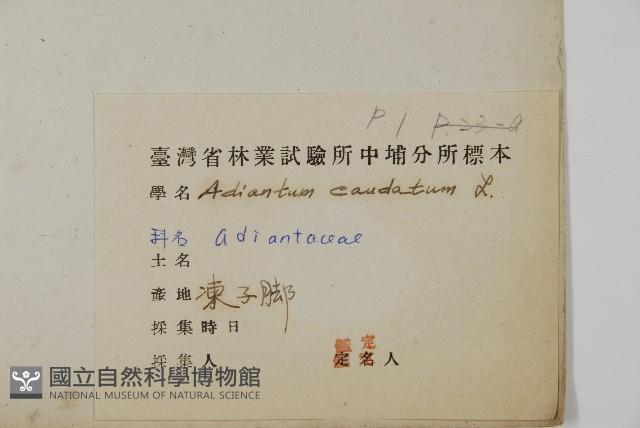 P.1 P.23-a
臺灣省林業試驗所中埔分所標本
學名 Adiantum caudatum L.
科名 adiantaceae
土名
產地 凍子腳
採集時日
鑑定
採集人 定名人
國立自然科學博物館
NATIONAL MUSEUM OF NATURAL SCIENCE